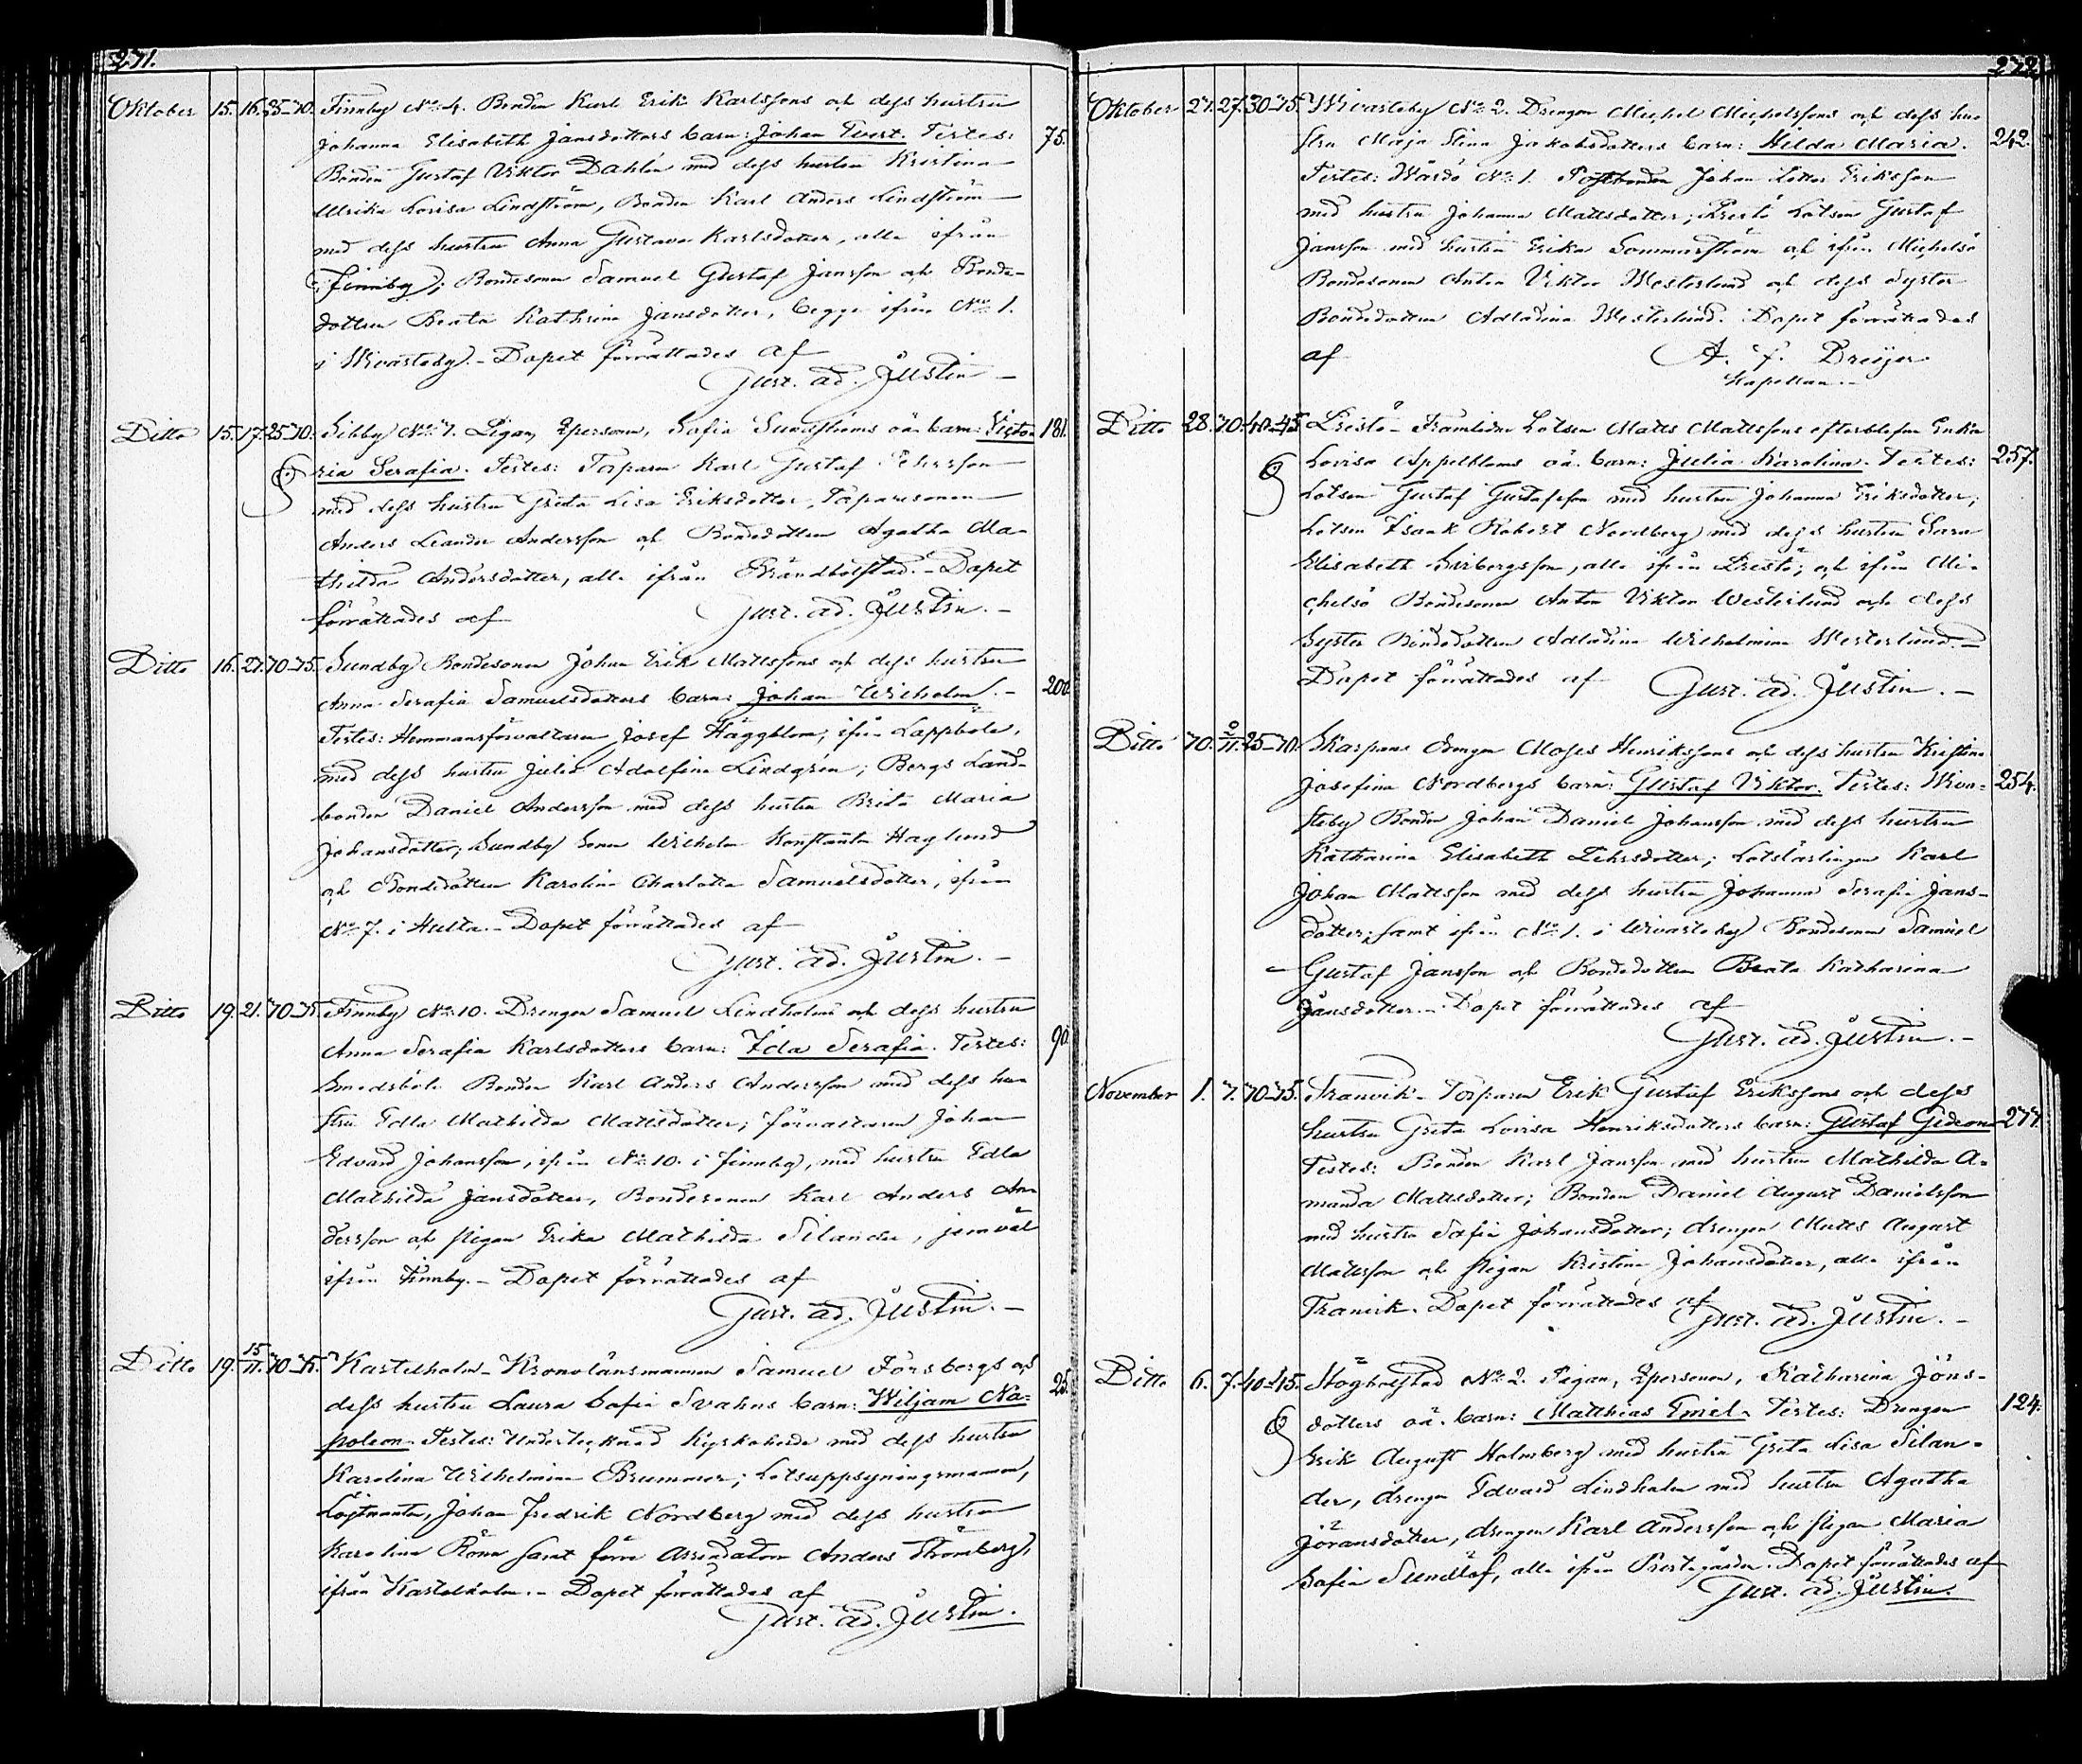 271.
Oktober 15. 16. 25-30. Finnby No 4. Bonden Karl Erik Karlssons och dess hustru
Johanna Elisabeth Jansdotters barn: Johan Evert. Testes: 75.
Bonden Gustaf Viktor Dahlén med dess hustru Kristina
Ulrika Lovisa Lindström, Bonden Karl Anders Lindström
med dess hustru Anna Gustava Karlsdotter, alla ifrån
Finnby; Bondesonen Samuel Gustaf Jansson och Bonde-
dottren Beata Kathrina Jansdotter, begge ifrån No 1.
i Wivasteby. - Dopet förrättades af
Gust. ad. Justin -
Ditto 15. 17. 25-30. Sibby No 7. Pigan, Ipersonen, Sofia Sundströms oä. barn: Victo- 181.
ria Serafia. Testes: Torparen Karl Gustaf Pehrsson
med dess hustru Greta Lisa Eriksdotter, Torparesonen
Anders Leander Andersson och Bondedottren Agatha Ma-
thilda Andersdotter, alla ifrån Brändbolstad. - Dopet
förrättades af Gust. ad. Justin. -
Ditto 16. 21. 30-35. Sundby Bondesonen Johan Erik Mattssons och dess hustru
Anna Serafia Samuelsdotters barn: Johan Wilhelm. - 200
Testes: Hemmansförvaltaren Josef Häggblom, ifrån Lappböle,
med dess hustru Julia Adolfina Lindgrén; Bergs Land-
bonden Daniel Andersson med dess hustru Brita Maria
Johansdotter; Sundby Sonen Wilhelm Konstantin Haglund
och Bondedottren Karolina Charlotta Samuelsdotter, ifrån
No 7. i Hulta. - Dopet förrättades af
Gust. ad. Justin. -
Ditto 19. 21. 30-35. Finnby No 10. Drengen Samuel Lindholms och dess hustru
Anna Serafia Karlsdotters barn: Ida Serafia. Testes: 90.
Smedsböle Bonden Karl Anders Andersson med dess hu-
stru Edla Mathilda Mattsdotter; förvaltaren Johan
Edvard Johansson, ifrån No 10. i Finnby, med hustru Edla
Mathilda Jansdotter, Bondesonen Karl Anders An-
dersson och pigan Erika Mathilda Silander, jemväl
ifrån Finnby. - Dopet förrättades af
Gust. ad. Justin. -
Ditto 19. 15/11. 30-35. Kastelholm - Kronolänsmannen Samuel Forsbergs och
dess hustru Laura Sofia Svahns barn: Wiljam Na- 25.
poleon. Testes: Undertecknad Kyrkoherde med dess hustru
Karolina Wilhelmina Brummer; Lotsuppsyningsmannen,
Löjtnanten, Johan Fredrik Nordberg med dess hustru
Karolina Rönn samt förra Arrendatorn Anders Strömberg,
ifrån Kastelholm. - Dopet förrättades af
Gust. ad. Justin.
272
Oktober 21. 27. 30-35. Wivasteby No 2. Drengen Michel Michelssons och dess hu-
stru Maja Stina Jakobsdotters barn: Hilda Maria. 242.
Testes: Wårdö No 1. Postbonden Johan Petter Eriksson
med hustru Johanna Mattsdotter; Prestö Lotsen Gustaf
Jansson med hustru Erika Sommarström och ifrån Michelsö
Bondesonen Anton Viktor Westerlund och dess Syster
Bondedottren Adladina Westerlund. Dopet förrättades
af A. F. Dreijer
Kapellan. -
Ditto 28. 30. 40-45. Prestö - Framlidne Lotsen Matts Mattssons efterblefne Enka
Lovisa Appelbloms oä. barn: Julia Karolina. Testes: 257.
Lotsen Gustaf Gustafsson med hustru Johanna Eriksdotter;
Lotsen Isaak Robert Nordberg med dess hustru Sara
Elisabeth Sirbergsson, alla ifrån Prestö; och ifrån Mi-
chelsö Bondesonen Anton Viktor Westerlund och dess
Syster Bondedottren Adladina Wilhelmina Westerlund. -
Dopet förrättades af Gust. ad. Justin. -
Ditto 30. 2/11. 25-30. Skarpans Drengen Moses Henrikssons och dess hustru Kristina
Josefina Nordbergs barn: Gustaf Viktor. Testes: Wiva- 254.
steby Bonden Johan Daniel Johansson med dess hustru
Katharina Elisabeth Pehrsdotter; Lotslärlingen Karl
Johan Mattsson med dess hustru Johanna Serafia Jans-
dotter; samt ifrån No 1. i Wivasteby Bondesonen Samuel
Gustaf Jansson och Bondedottren Beata Katharina
Jansdotter. - Dopet förrättades af
Gust. ad. Justin. -
November 1. 7. 30-35. Tranvik - Torparen Erik Gustaf Erikssons och dess
hustru Greta Lovisa Henriksdotters barn: Gustaf Gideon 277.
Testes: Bonden Karl Jansson med hustru Mathilda A-
manda Mattsdotter; Bonden Daniel August Danielsson
med hustru Sofia Johansdotter; drengen Matts August
Mattsson och pigan Kristina Johansdotter, alla ifrån
Tranvik. Dopet förrättades af
Gust. ad. Justin. -
Ditto 6. 7. 40-45. Högbolstad No 2. Pigan, Ipersonen, Katharina Jöns-
dotters oä. barn: Matthias Emil. Testes: Drengen 124.
Erik August Holmberg med hustru Greta Lisa Silan-
der, drengen Edvard Lindholm med hustru Agatha
Jöransdotter, drengen Karl Andersson och pigan Maria
Sofia Sundlöf, alla ifrån Prestgården. Dopet förrättades af
Gust. ad. Justin.